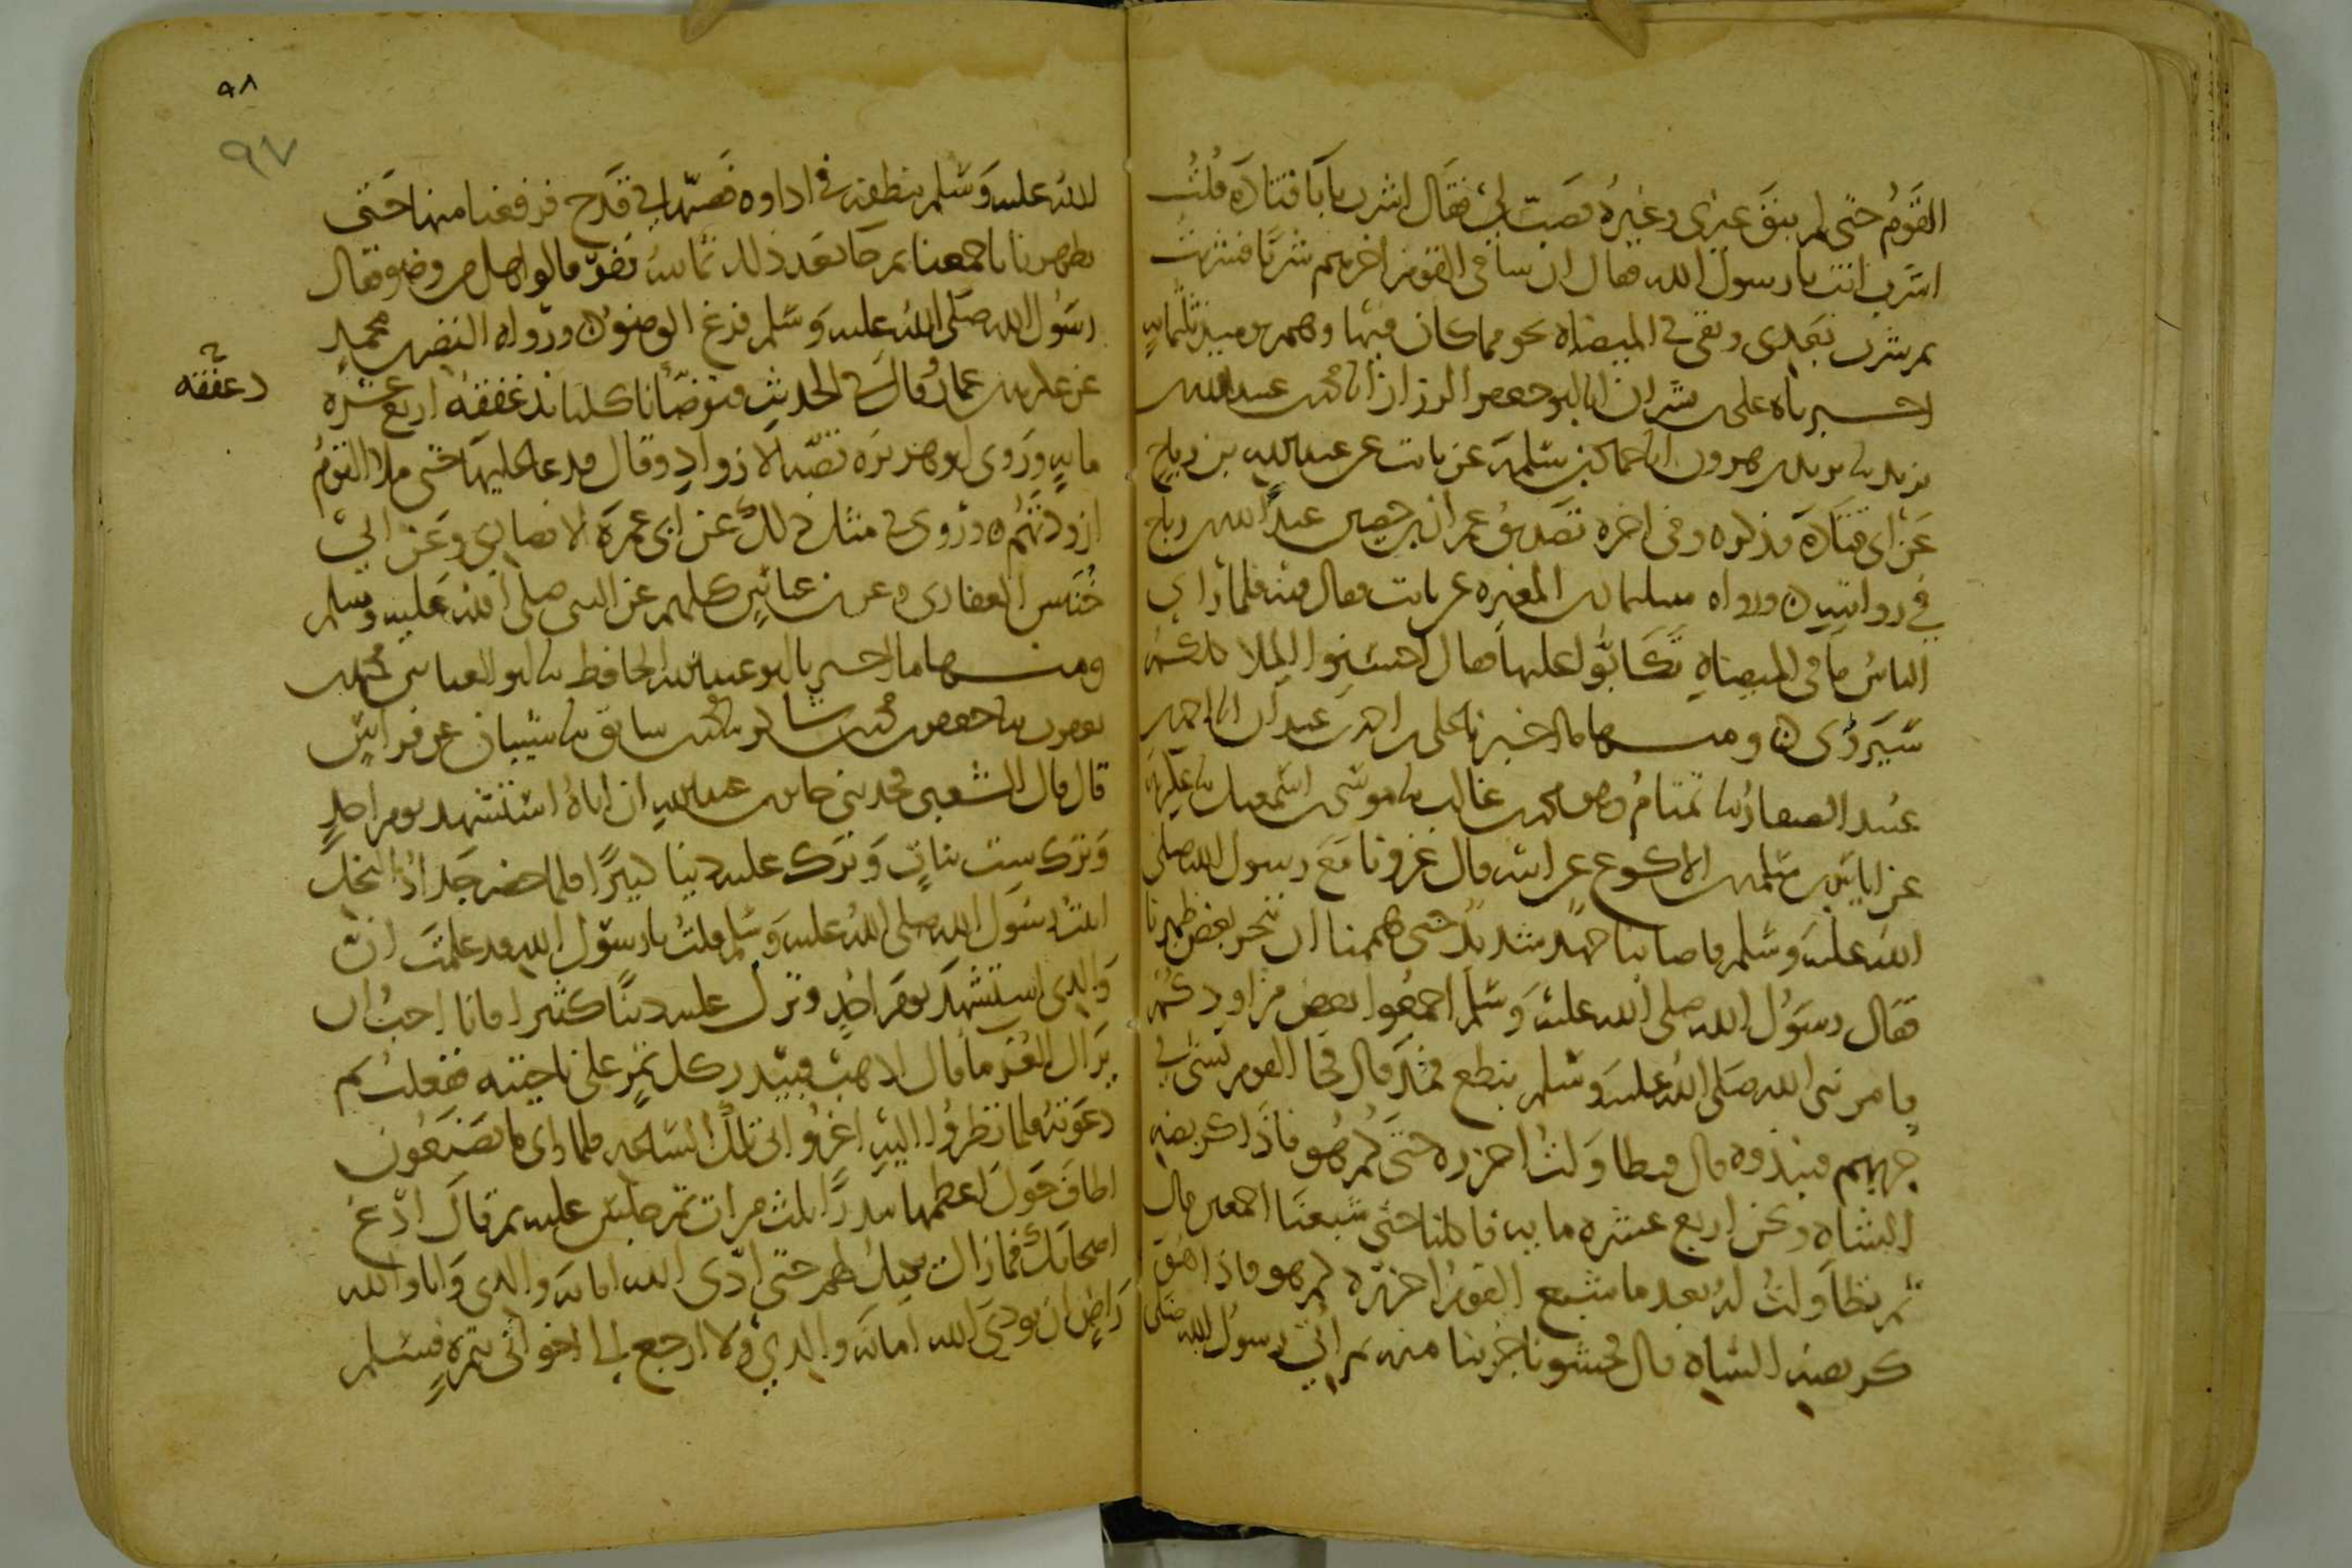 القوم حتى لم يبق غيري وغيره فصب لي فقال اشرب يا با قتادة قلت
اشرب انت يا رسول الله فقال ان ساقي القوم اخرهم شربا فشربت
ثم شرب بعدي وبقي في الميضاه نحو مما كان فيها وهم يوميذ ثلثمايه
اخبرناه على بن بشران انا ابو جعفر الرزاز نا محمد بن عبيد الله بن
يزيد نا يزيد بن هرون انا حماد بن سلمة عن ثابت عن عبد الله بن رباح
عن ابي قتادة فذكره وفي اخره تصديق عمران بن حصين عبد الله بن رباح
في روايته ورواه سليمان بن المغيره عن ثابت وقال فيه فلما راي
الناس ما في الميضاه تكابوا عليها فقال احسنوا الملا كلكم
سيروى ومنها ما اخبرنا على بن احمد بن عبدان انا احمد بن
عبيد الصفار نا تمتام وهو محمد بن غالب نا موسى بن اسمعيل نا عكرمة
عن اياس بن سلمه بن الاكوع عن ابيه قال غزونا مع رسول الله صلى
الله عليه وسلم فاصابنا جهد شديد حتى هممنا ان ننحر بعض ظهرنا
فقال رسول الله صلى الله عليه وسلم اجمعوا بعض مزاودكم
فامر نبي الله صلى الله عليه وسلم بنطع فمد قال فجا القوم بشي في
جربهم فنبذوه قال فتطاولت احزره حتى كم هو فاذا كربضه
الشاه ونحن اربع عشره مايه فاكلنا حتى شبعنا اجمعين قال
ثم تطاولت له بعد ما شبع القوم احزره كم هو فاذا هو
كربضه الشاه قال فحشونا جربنا منه ثم اتي رسول الله صلى
الله عليه وسلم بنطفه في اداوه فصبها في قدح فرفعنا منها حتى
تطهرنا باجمعنا ثم جا بعد ذلك ثمانيه نفر قالوا هل من وضو فقال
رسول الله صلى الله عليه وسلم فرغ الوضو ورواه النضر بن محمد
عن عكرمه بن عمار وقال في الحديث فتوضانا كلنا ندغفقه اربع عشره
دغفقه
مايه وروى ابو هريره قصه الازواد وقال فدعا عليها حتى ملا القوم
ازودتهم وروي في مثل ذلك عن ابي عمره الانصاري وعن ابي
خنيس الغفاري وعن ابن عباس كلهم عن النبي صلى الله عليه وسلم
ومنها ما اخبرنا ابو عبد الله الحافظ نا ابو العباس محمد بن
يعقوب نا جعفر بن محمد بن شاكر نا محمد بن سابق نا شيبان عن فراس
قال قال الشعبي حدثني جابر بن عبد الله ان اباه استشهد يوم احد
وترك ست بنات وترك عليه دينا كثيرا فلما حضر جداد النخل
اتيت رسول الله صلى الله عليه وسلم قلت يا رسول الله قد علمت ان
والدي استشهد يوم احد وترك عليه دينا كثيرا فانا احب ان
يراك الغرما قال اذهب فبيدر كل تمر على ناحيته ففعلت ثم
دعوته فلما نظروا اليه اغروا بي تلك الساعه فلما راى ما يصنعون
اطاف حول اعظمها بيدرا ثلث مرات ثم جلس عليه ثم قال ادع
اصحابك فما زال يكيل لهم حتى ادى الله امانه والدي وانا والله
راض ان يودي الله امانه والدي ولا ارجع الى اخواتي بتمره فسلم
٩٨
٩٧